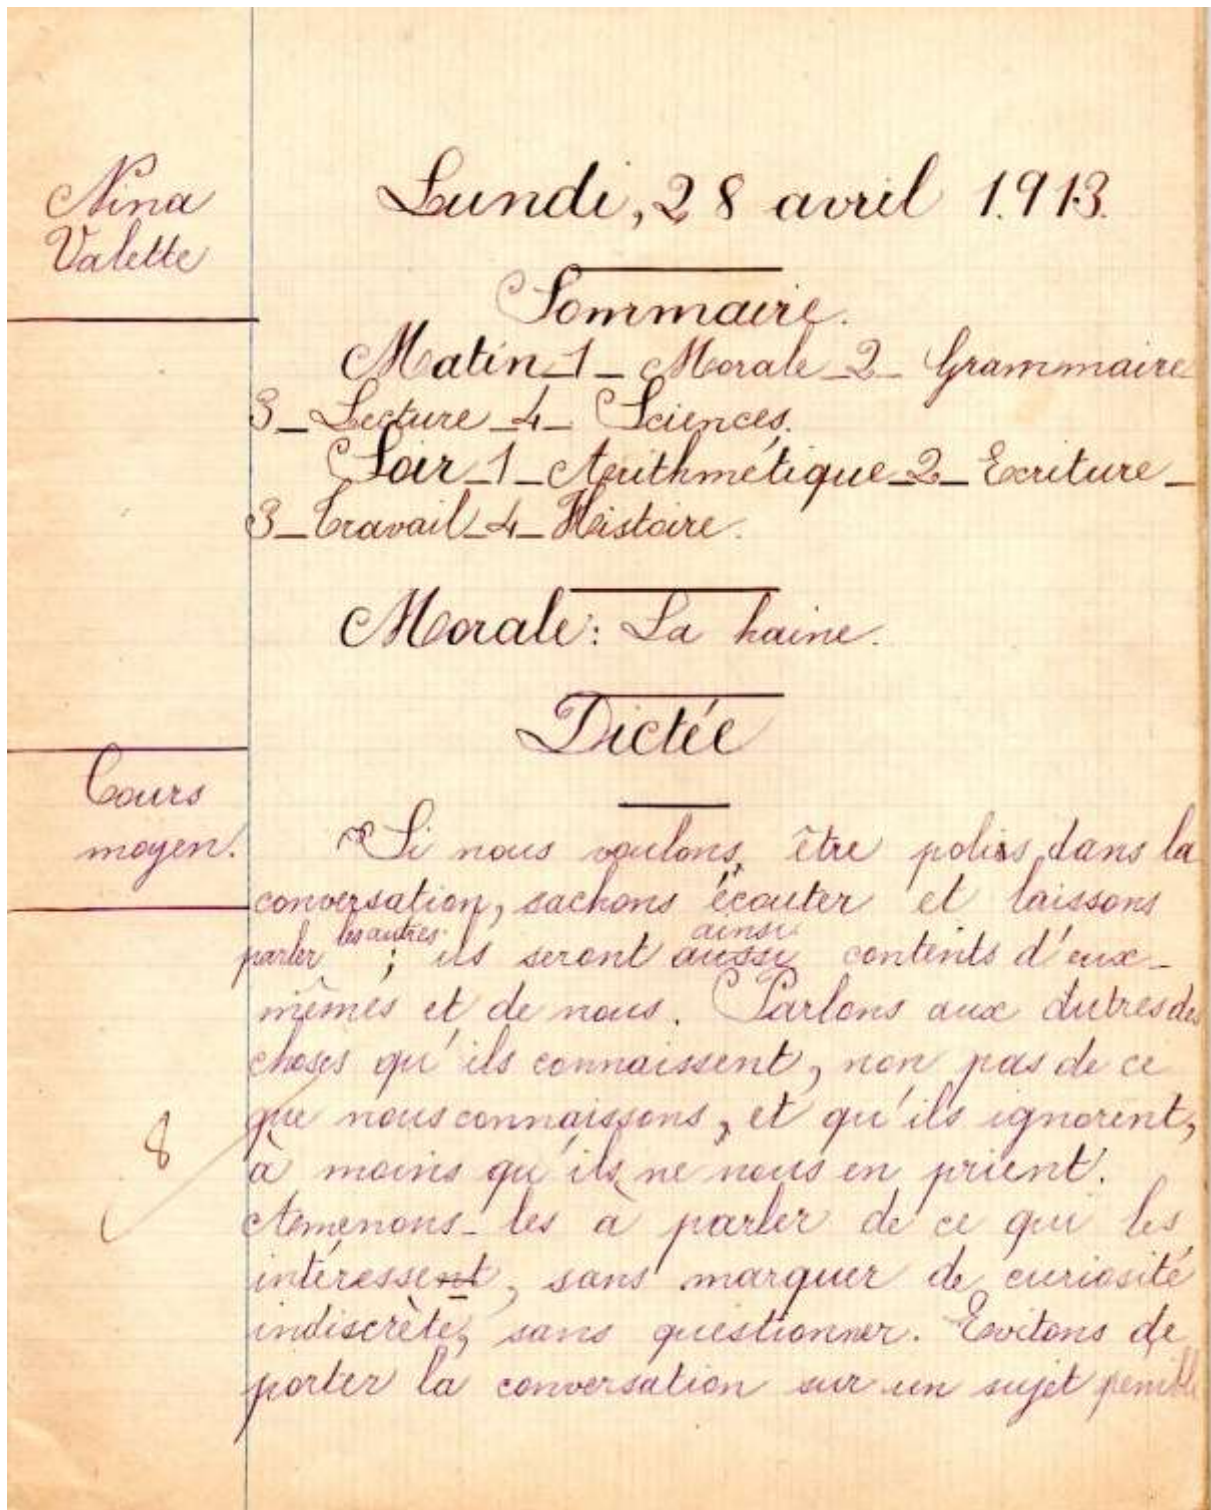 Nina
Valette
Lundi, 28 avril 1913.
Sommaire.
Matin_1_Morale_2_Grammaire
3_Lecture_4_Sciences.
Soir_1_Arithmétique_2_Ecriture_
3_Travail_4_Histoire.
Morale: La haine.
Dictée
Cours
moyen.
Si nous voulons, être polis, dans la
conversation, sachons écouter et laissons
parler les autres; ils seront aussi ainsi contents d'eux-
mêmes et de nous. Parlons aux autres des
choses qu'ils connaissent, non pas de ce
que nous connaissons, et qu'ils ignorent,
8
à moins qu'ils ne nous en prient.
Amenons-les à parler de ce qui les
intéressent, sans marquer de curiosité
indiscrète, sans questionner. Evitons de
porter la conversation sur un sujet penible